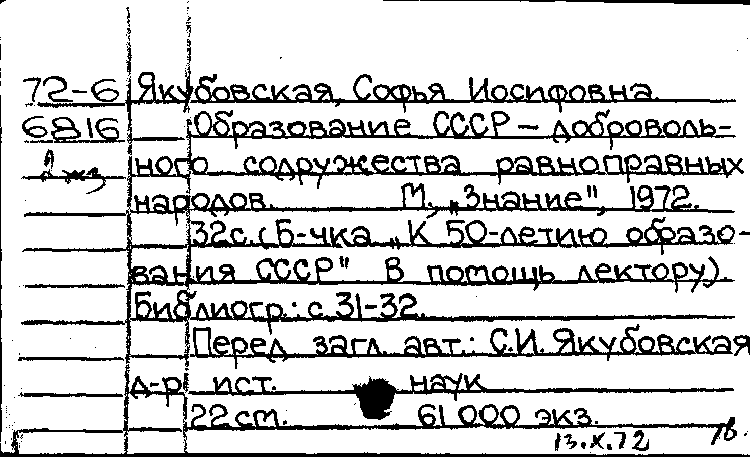 72-6 Якубовская, Софья Иосифовна.
6816 Образование СССР – доброволь-
2 экз ного содружества равноправных
народов. М., „Знание", 1972.
32с. (Б-чка „К 50-летию образо-
вания СССР" В помощь лектору).
Библиогр.: с. 31-32.
Перед загл. авт.: С.И. Якубовская
д-р ист. наук
22 см. 61 000 экз.
13.X.72